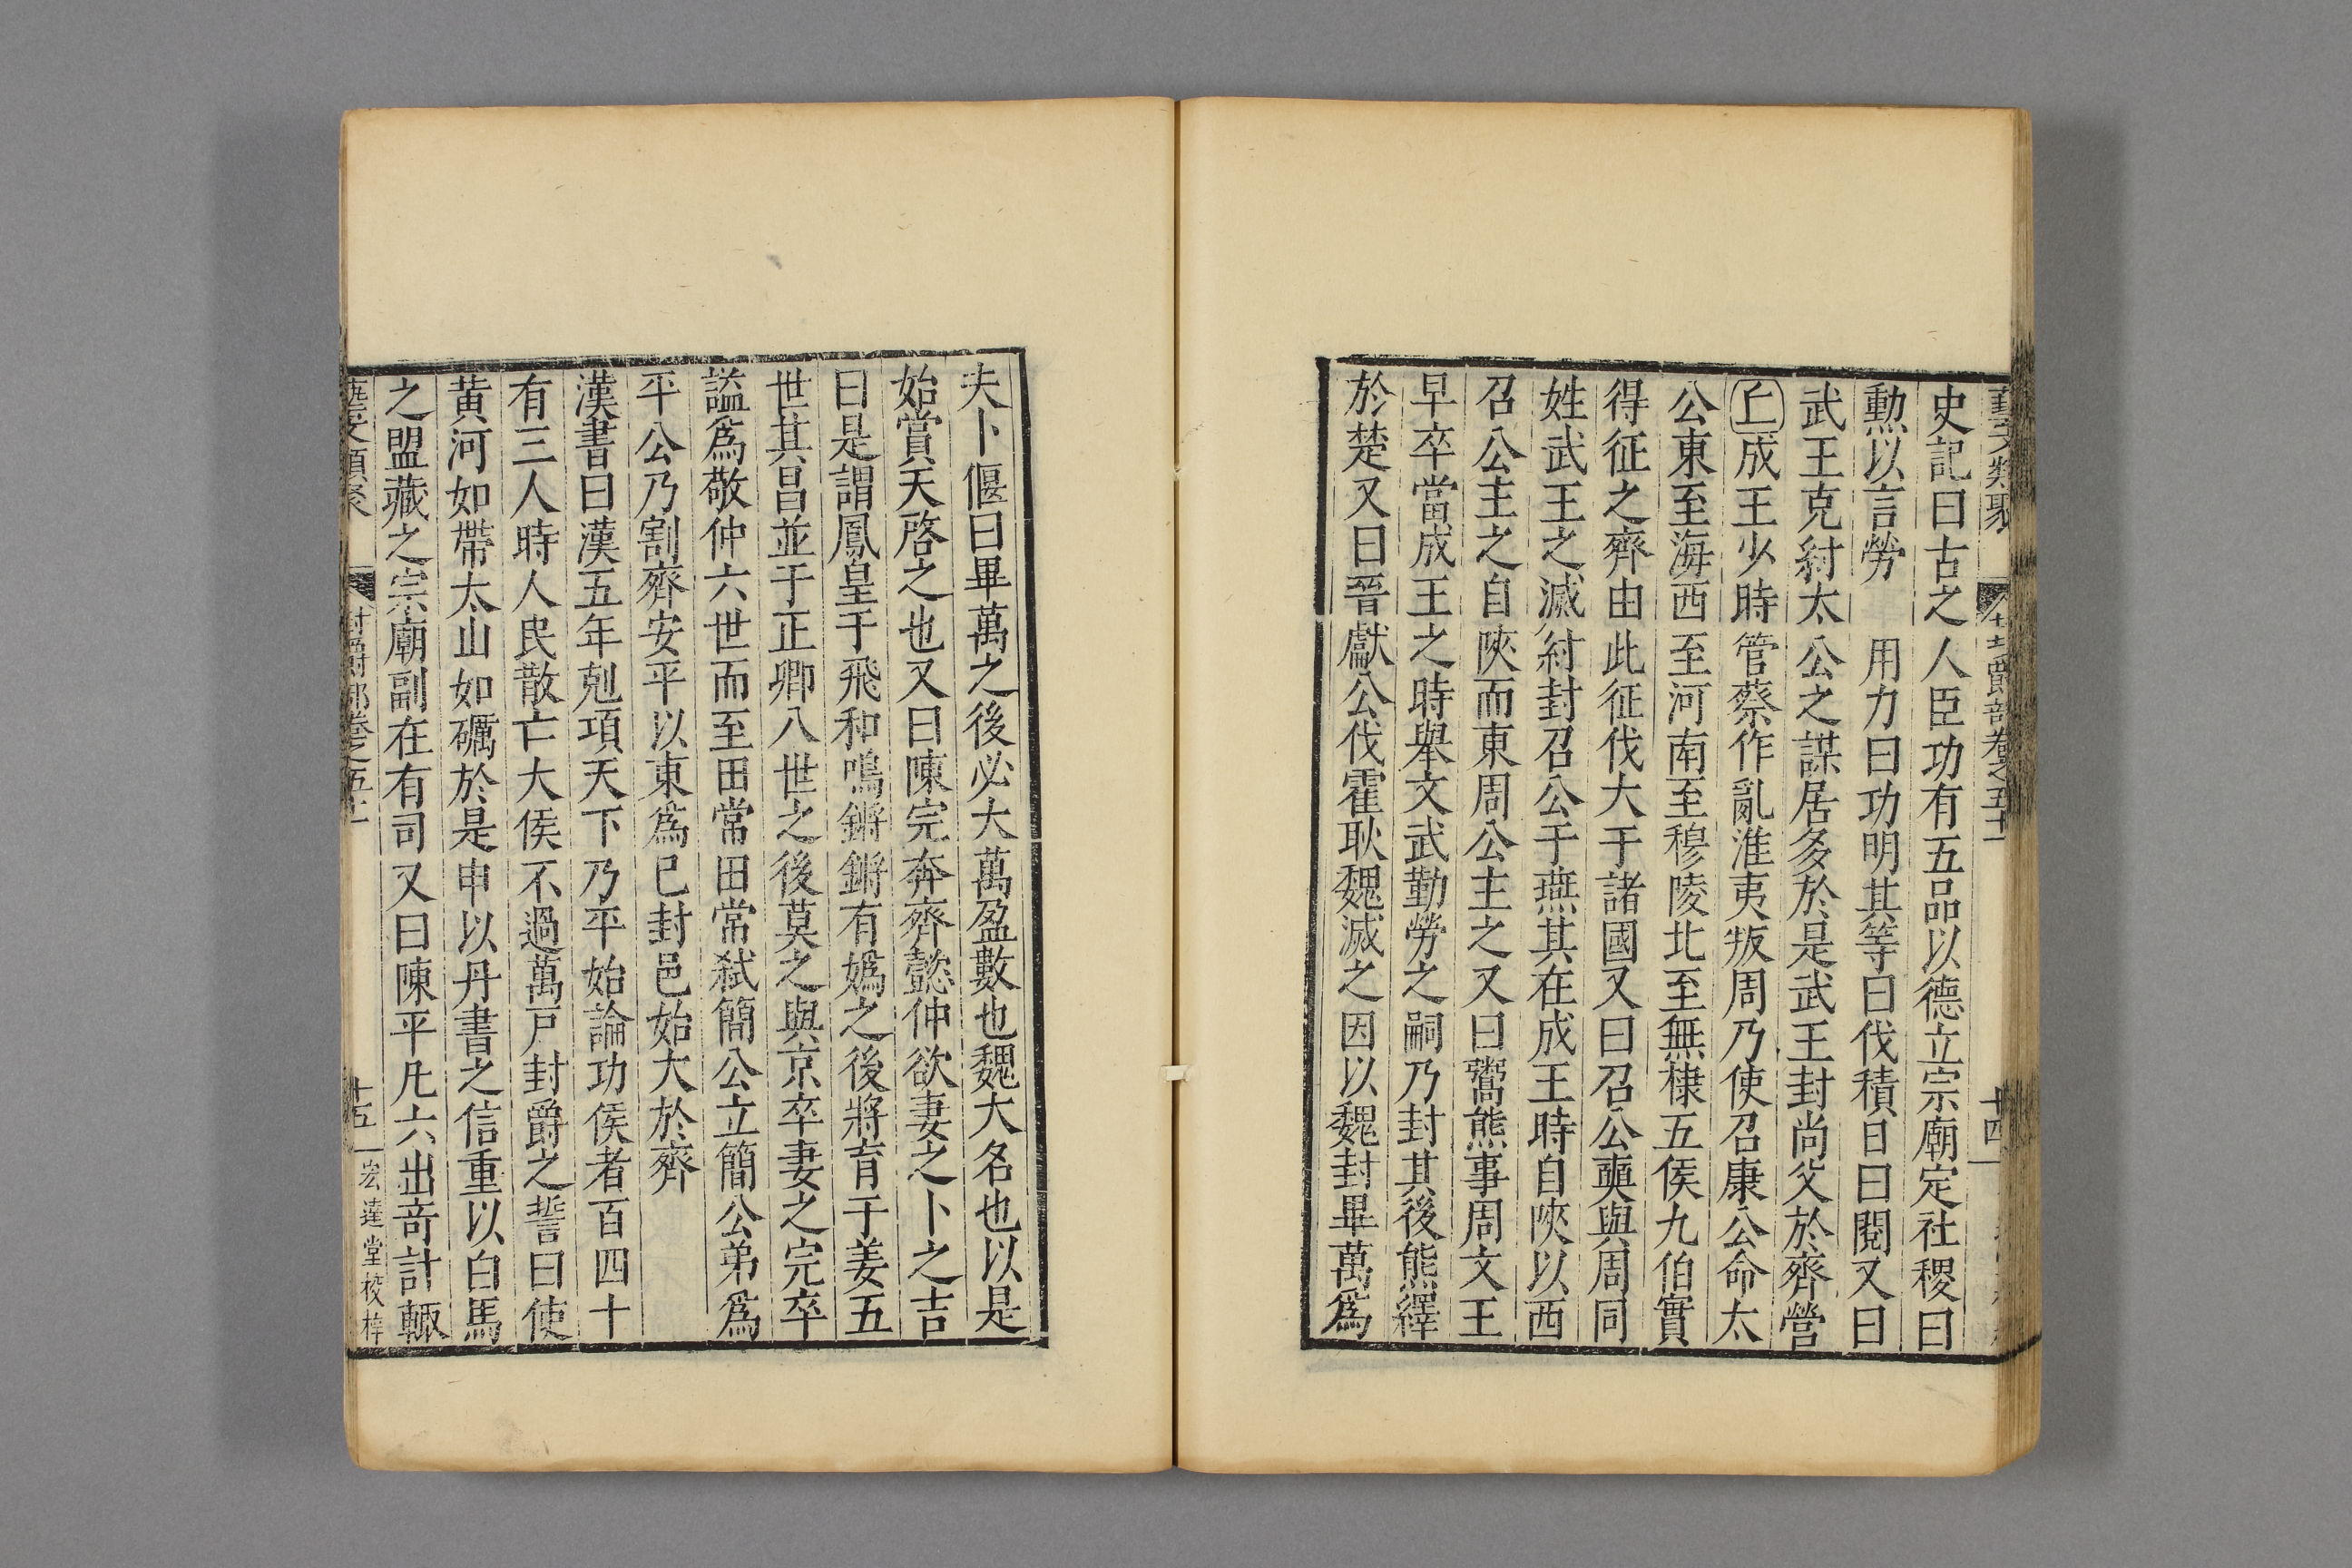 藝文類聚 封爵部卷之五十一 十四
史記曰古之人臣功有五品以德立宗廟定社稷曰
勳以言勞 用力曰功明其等曰伐積日曰閱又曰
武王克紂太公之謀居多於是武王封尚父於齊營
丘成王少時管蔡作亂淮夷叛周乃使召康公命太
公東至海西至河南至穆陵北至無棣五侯九伯實
得征之齊由此征伐大于諸國又曰召公奭與周同
姓武王之滅紂封召公于燕其在成王時自陝以西
召公主之自陝而東周公主之又曰鬻熊事周文王
早卒當成王之時舉文武勤勞之嗣乃封其後熊繹
於楚又曰晉獻公伐霍耿魏滅之因以魏封畢萬爲
夫卜偃曰畢萬之後必大萬盈數也魏大名也以是
始賞天啓之也又曰陳完奔齊懿仲欲妻之卜之吉
曰是謂鳳皇于飛和鳴鏘鏘有嬀之後將育于姜五
世其昌並于正卿八世之後莫之與京卒妻之完卒
謚爲敬仲六世而至田常田常弒簡公立簡公弟爲
平公乃割齊安平以東爲已封邑始大於齊
漢書曰漢五年剋項天下乃平始論功侯者百四十
有三人時人民散亡大侯不過萬戸封爵之誓曰使
黃河如帶太山如礪於是申以丹書之信重以白馬
之盟藏之宗廟副在有司又曰陳平凡六出竒計輙
藝文類聚 封爵部卷之五十一 十五 宏達堂校梓